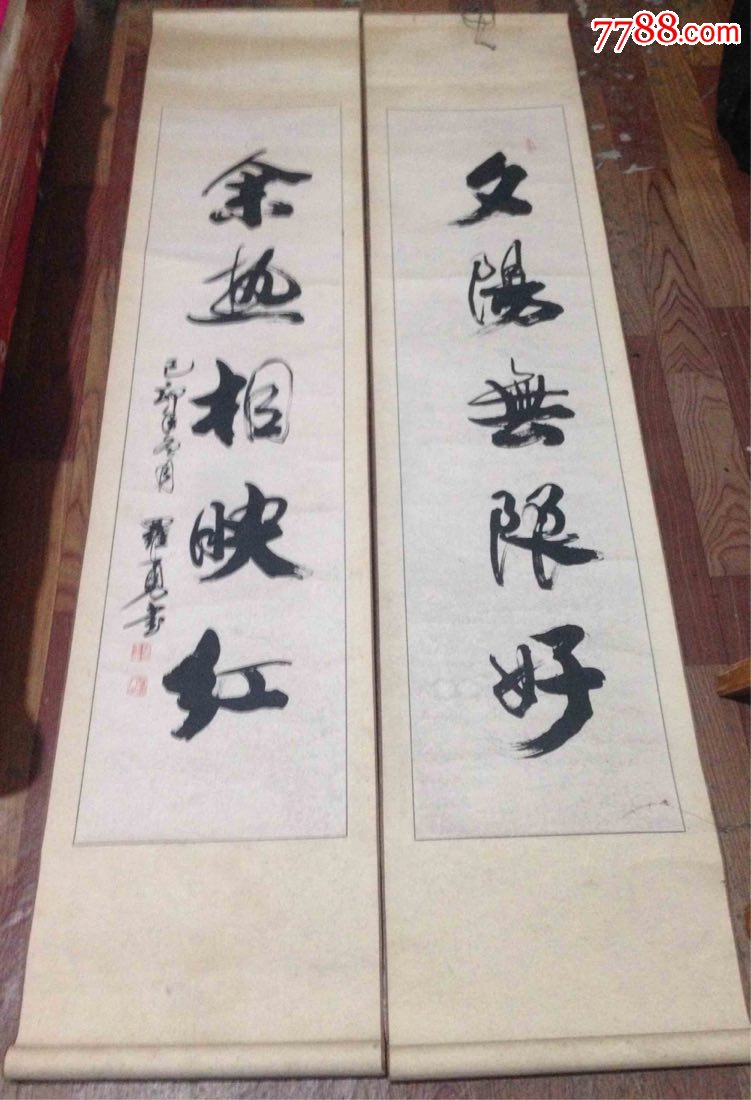 7788.com
夕陽無限好
余热相映红
己卯年
羅勇书